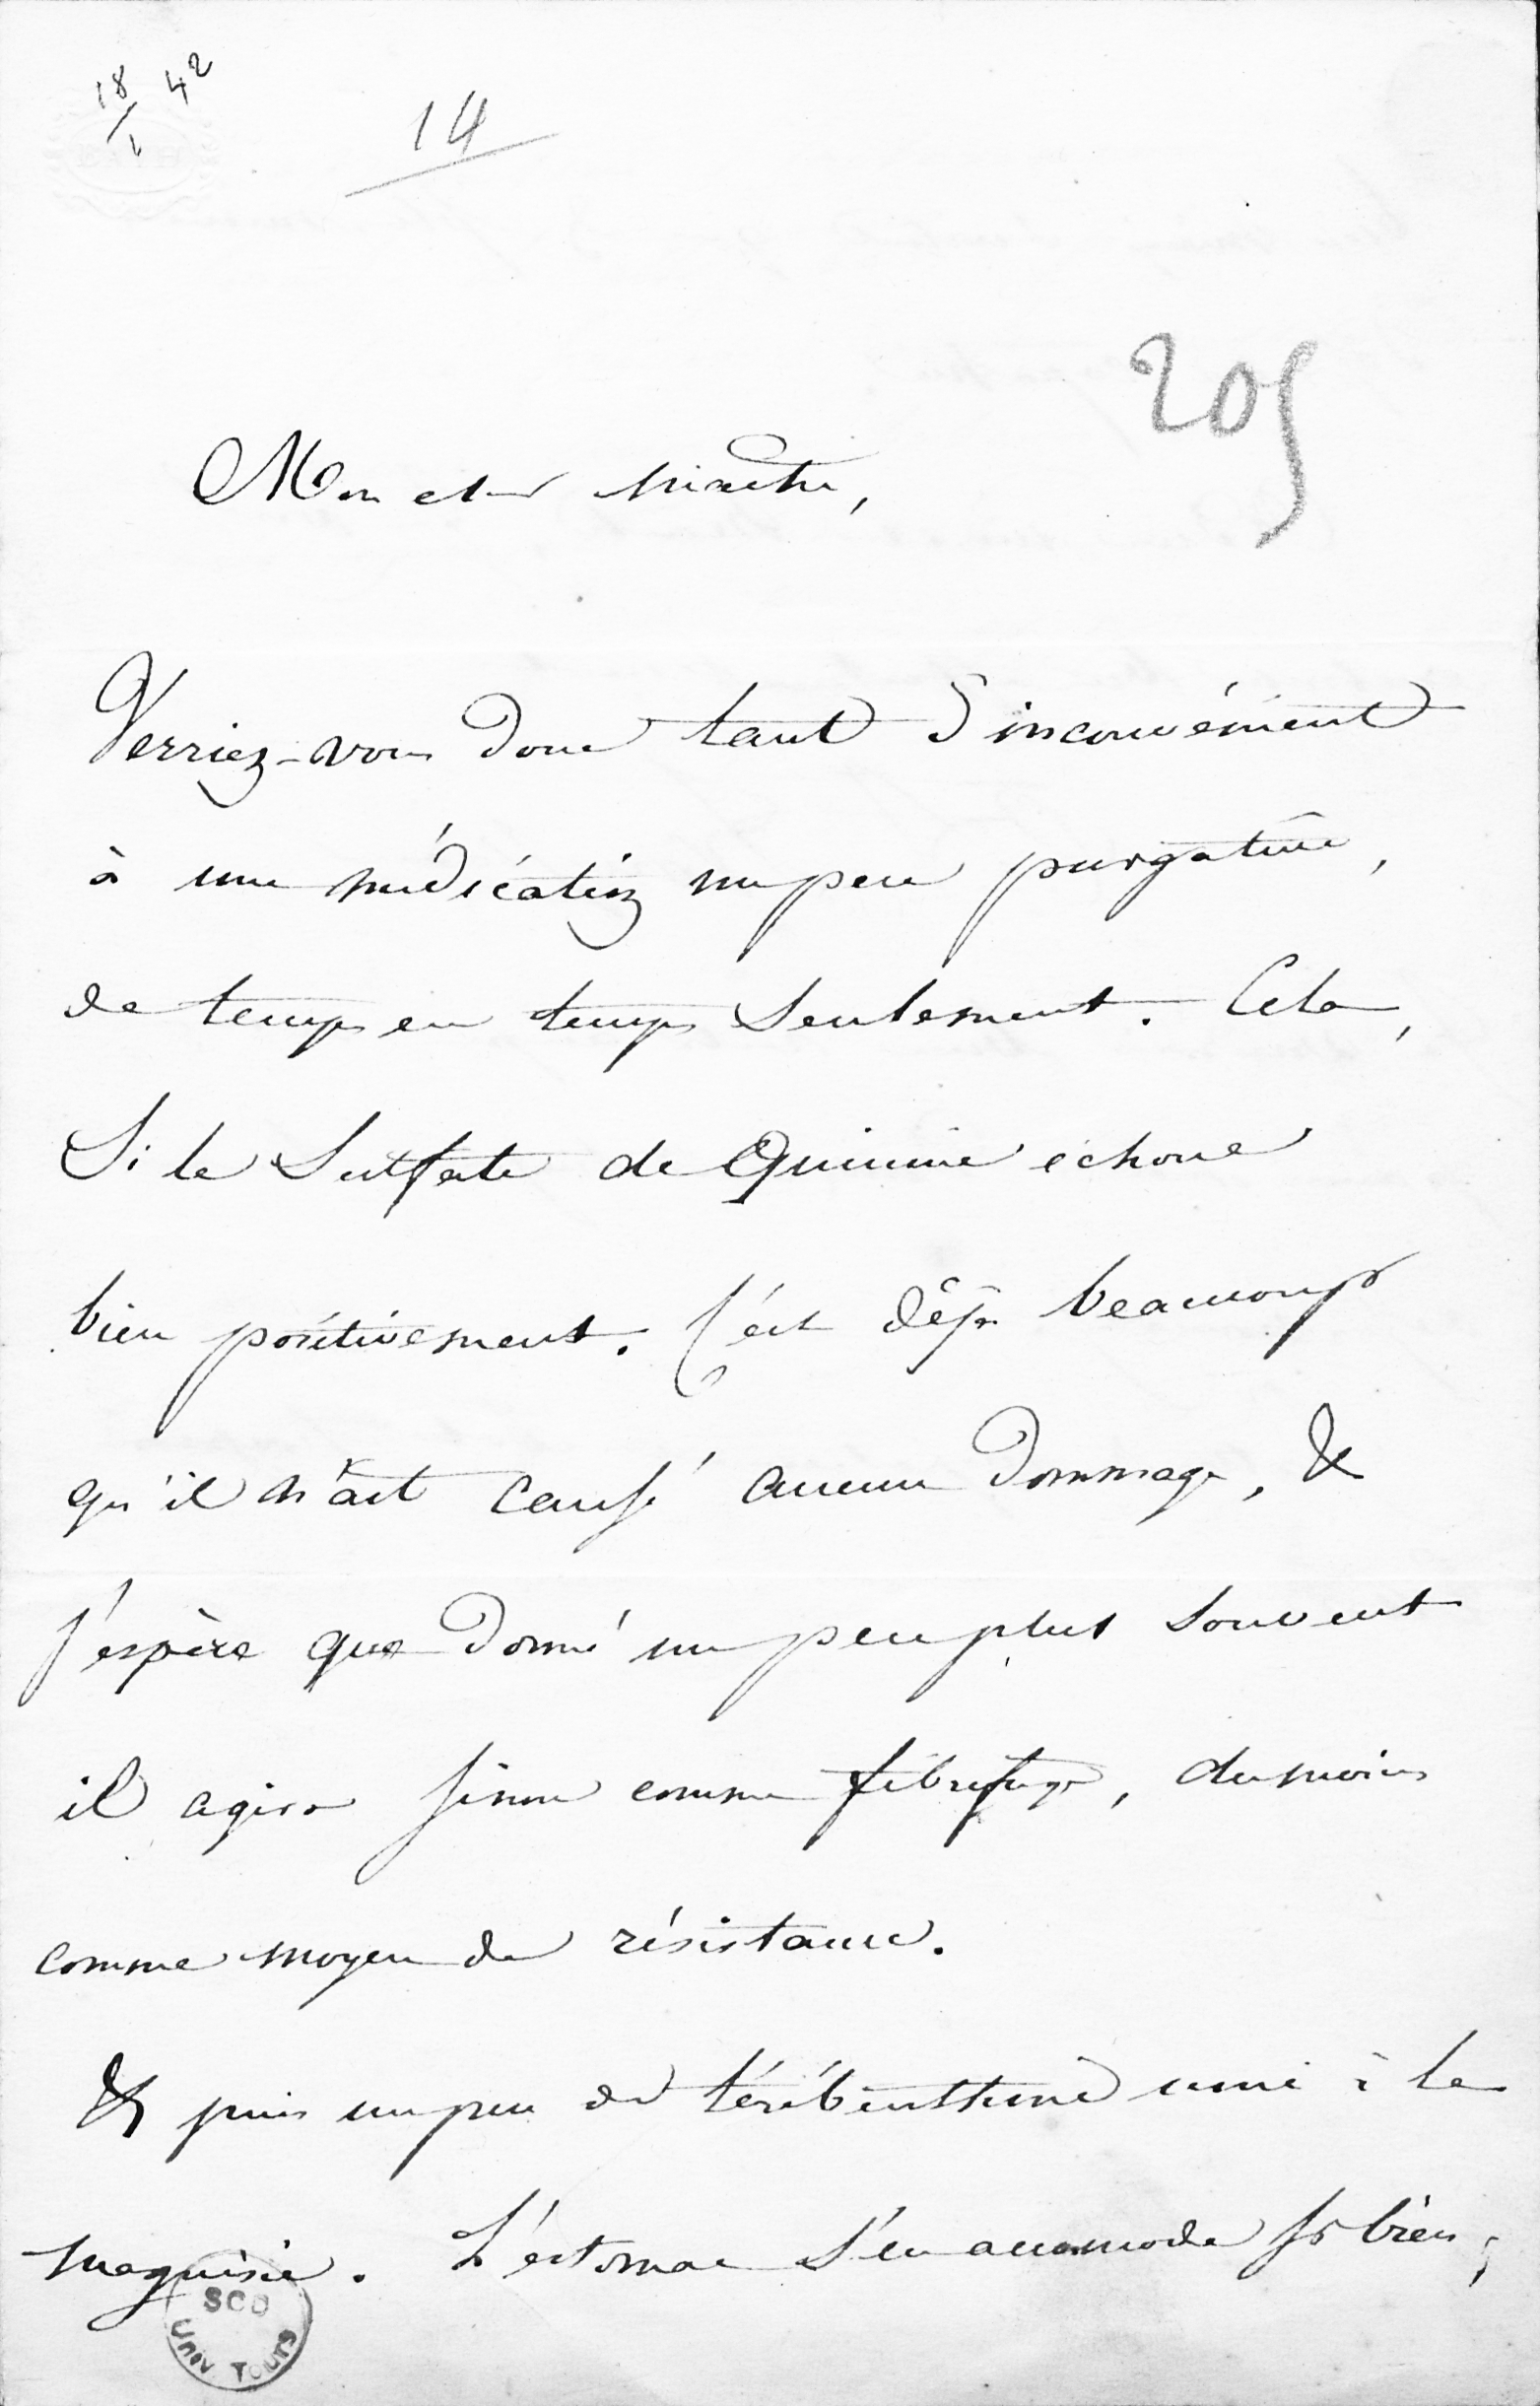 18/1 42
14
205
Mon cher maître,
Verriez-vous donc tant d'inconvénient
à une médication un peu purgative,
de temps en temps seulement. Cela,
Si le Sulfate de Quinine échoue
bien positivement. C'est déjà beaucoup
qu'il n'ait causé aucun dommage, &
j'espère que donné un peu plus souvent
il agira sinon comme fébrifuge, du moins
comme moyen de résistance.
& puis un peu de térébenthine unie à la
magnésie. L'estomac s'en accomode si bien;
SCD
Univ Tours